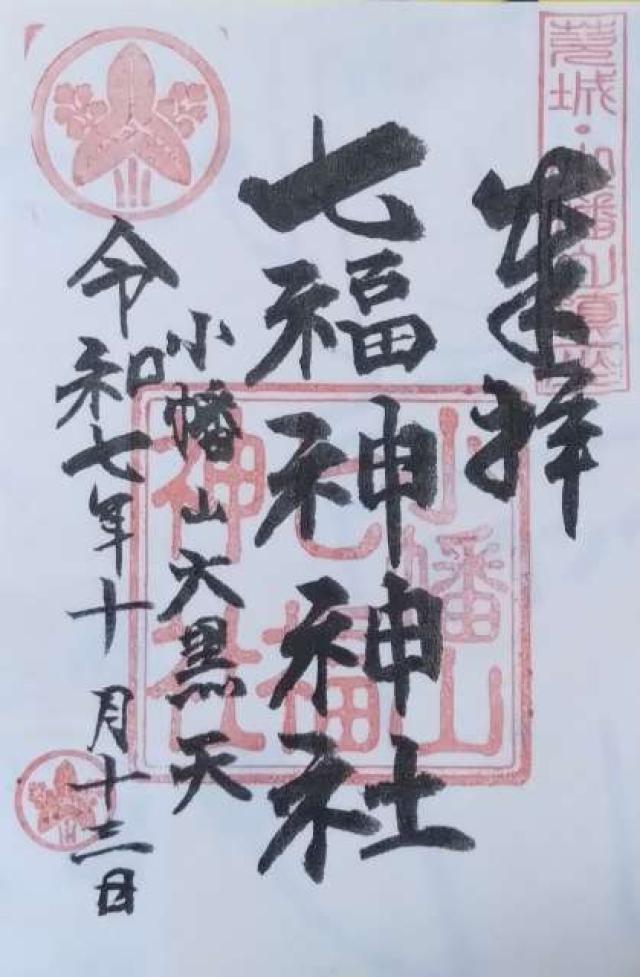 茨城・小幡山鎮座
奉拝
七福神神社
小幡山大黒天
令和七年十月十三日
小幡山
七福
神社